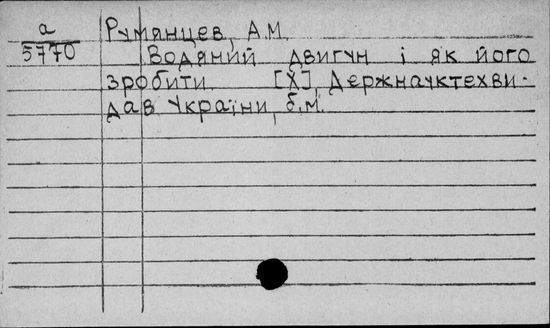 а
5770
Румянцев, А.М.
Водяний двигун і як його
зробити. [Х], Держнауктехви-
дав України, б.м.